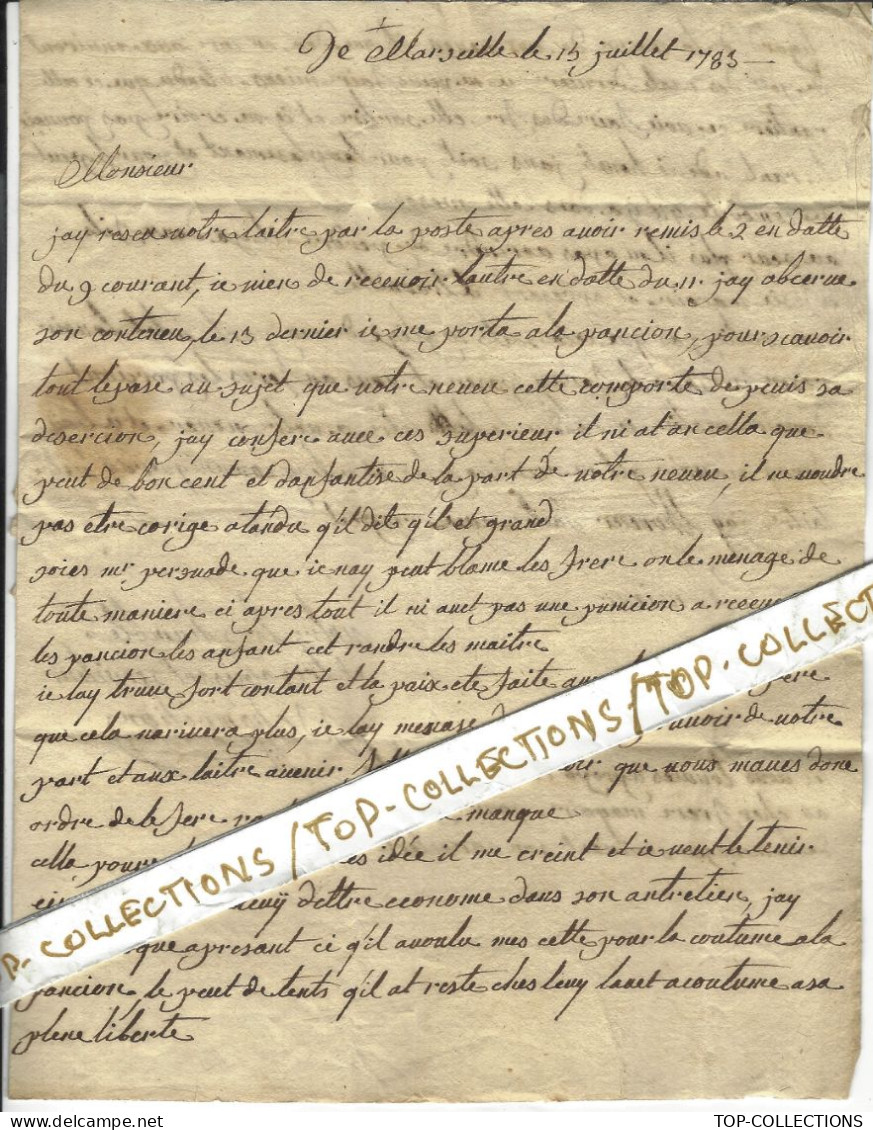 De Marseille le 15 juillet 1783
Monsieur
jay reseu votre laitre par la poste apres avoir remis le 2 en datte
du 9 courant, je vien de recevoir lautre en datte du 11 jay obcerve
son conteneu, le 13 dernier je me porta a la pancion, pour scavoir
tout le pase au sujet que votre neveu cette comporte depeuis sa
desercion, jay confere avec ces superieur il ni at an cella que
peut de bon cent et danfantise de la part de votre neveu, il ne voudre
pas etre corige atandu q'il dit q'il et grand
soies mr persuade que je nay peut blame les frere on le menage de
toute maniere ci apres tout il ni avet pas une punicion a recev
les pancion les anfant cet randre les maitre
je lay truve fort contant et la paix ete faite av
que cela narivera plus, je lay menase
part et aux laitre avenir que vous maves done
ordre de le fere manque
cella pour idée il me creint et je veut le tenir
leuy dettre econome dans son antretien, jay
que apresant ci q'il a voulu mes cette pour la coutume a la
pancion, le peut de tents q'il at reste ches leuy lavet acoutume a sa
plene liberte
P- COLLECTIONS / TOP-COLLECTIONS / TOP-COLLECT
TOP-COLLECTIONS